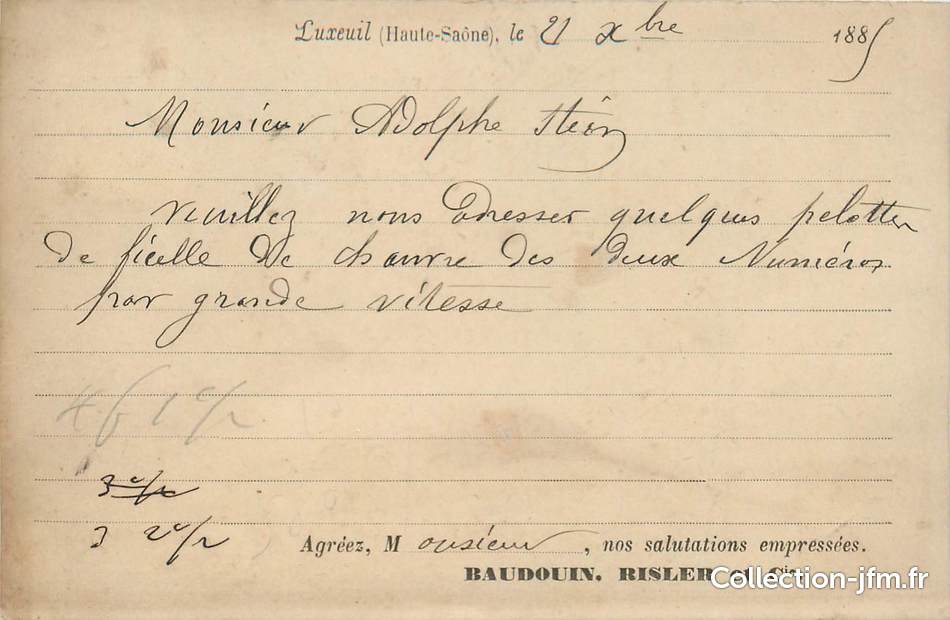 Luxeuil (Haute-Saône), le 21 Xbre 1885
Monsieur Adolphe
veuillez nous adresser quelques pelotten
de ficelle de chanvre des deux Numéros
par grande vitesse
3 2c/r
Agréez, Monsieur, nos salutations empressées.
BAUDOUIN, RISLER et Cie
Collection-jfm.fr